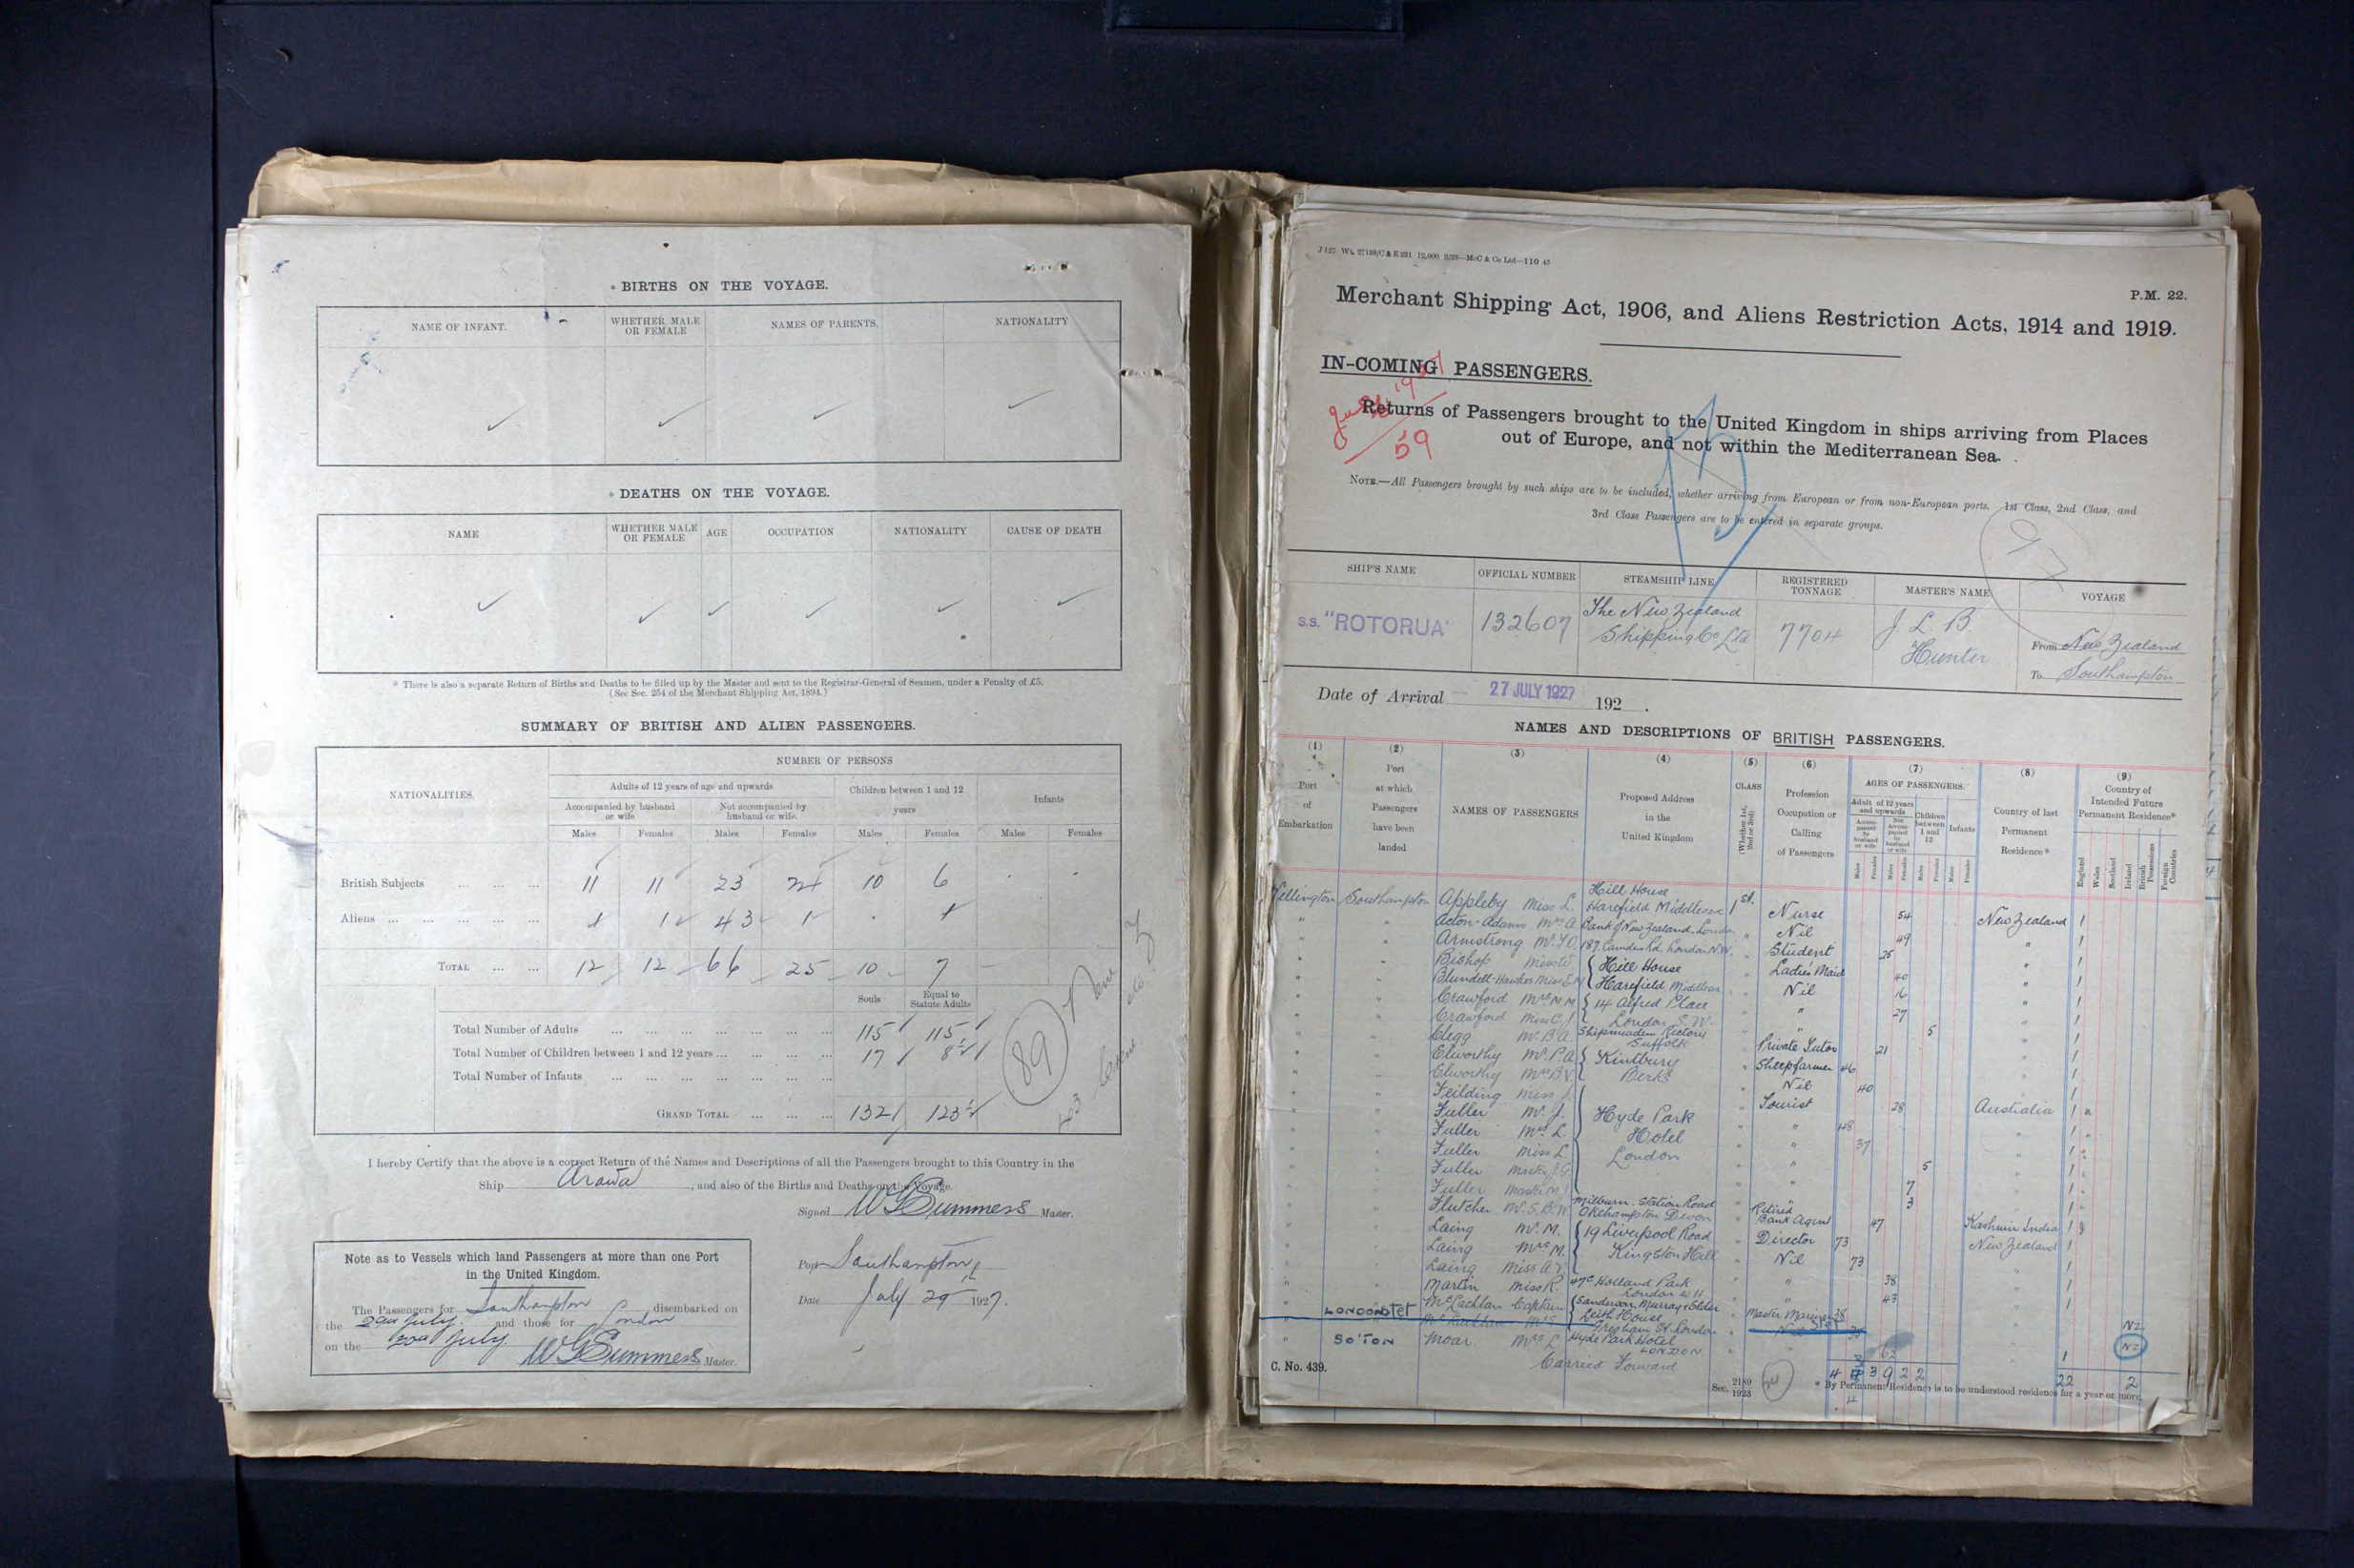 * BIRTHS ON THE VOYAGE.
NAME OF INFANT. WHETHER MALE OR FEMALE NAMES OF PARENTS. NATIONALITY
* DEATHS ON THE VOYAGE.
NAME WHETHER MALE OR FEMALE AGE OCCUPATION NATIONALITY CAUSE OF DEATH
* There is also a separate Return of Births and Deaths to be filled up by the Master and sent to the Registrar-General of Seamen, under a Penalty of £5.
(See Sec. 254 of the Merchant Shipping Act, 1894.)
SUMMARY OF BRITISH AND ALIEN PASSENGERS.
NATIONALITIES. NUMBER OF PERSONS
Adults of 12 years of age and upwards Children between 1 and 12 years Infants
Accompanied by husband or wife Not accompanied by husband or wife.
Males Females Males Females Males Females Males Females
British Subjects 11 11 23 24 10 6
Aliens 1 1 43 1 1
TOTAL 12 12 66 25 10 7
Souls Equal to Statute Adults
Total Number of Adults 115 115
Total Number of Children between 1 and 12 years 17 8½
Total Number of Infants
GRAND TOTAL 132 123½
89
I hereby Certify that the above is a correct Return of the Names and Descriptions of all the Passengers brought to this Country in the
Ship Arawa, and also of the Births and Deaths on the Voyage.
Signed W G Summers Master.
Note as to Vessels which land Passengers at more than one Port
in the United Kingdom.
The Passengers for Southampton disembarked on
the 29th July. and those for London
on the July. W G Summers Master.
Port Southampton
Date July 29th 1927.
J 125 Wt. 27198/C & E 231 12,000 2/23—McC & Co Ltd—110 45
P.M. 22.
Merchant Shipping Act, 1906, and Aliens Restriction Acts, 1914 and 1919.
IN-COMING PASSENGERS.
59
Returns of Passengers brought to the United Kingdom in ships arriving from Places
out of Europe, and not within the Mediterranean Sea.
NOTE.—All Passengers brought by such ships are to be included, whether arriving from European or from non-European ports. 1st Class, 2nd Class, and
3rd Class Passengers are to be entered in separate groups.
97
SHIP'S NAME OFFICIAL NUMBER STEAMSHIP LINE REGISTERED TONNAGE MASTER'S NAME VOYAGE
s.s. "ROTORUA" 132607 The New Zealand Shipping Co Ltd 7704 J. L. B. Hunter From New Zealand
To Southampton
Date of Arrival 27 JULY 1927 192 .
NAMES AND DESCRIPTIONS OF BRITISH PASSENGERS.
(1) (2) (3) (4) (5) (6) (7) (8) (9)
Port of Embarkation
Port at which Passengers have been landed
NAMES OF PASSENGERS
Proposed Address in the United Kingdom
CLASS (Whether 1st, 2nd or 3rd)
Profession Occupation or Calling of Passengers
AGES OF PASSENGERS.
Adult of 12 years and upwards
Accompanied by husband or wife
Not Accompanied by husband or wife
Children between 1 and 12
Infants
Males Females Males Females Males Females Males Females
Country of last Permanent Residence*
Country of Intended Future Permanent Residence*
England Wales Scotland Ireland British Possessions Foreign Countries
Wellington Southampton Appleby Miss L. Hill House Harefield Middlesex 1st. Nurse 54 New Zealand 1
" " Acton-Adams Mrs A. Bank of New Zealand. London " Nil 49 " 1
" " Armstrong Mr. 187 Camden Rd. London N.W. " Student 25 " 1
" " Bishop Miss { Hill House " Ladies Maid 40 " 1
" " Blundell-Hawkes Miss { Harefield Middlesex " Nil 16 " 1
" " Crawford Mrs M.M. { 14 Alfred Place " " 27 " 1
" " Crawford Miss { London S.W. " " 5 " 1
" " Clegg Mr. B.A. Shipmeadow Rectory Suffolk " Private Tutor 21 " 1
" " Elworthy Mr. P.A. { Kintbury " Sheepfarmer 46 " 1
" " Elworthy Mrs B.V. { Berks " Nil 40 " 1
" " Feilding Miss " Tourist 28 Australia 1
" " Fuller Mr. J. Hyde Park " " 48 " 1
" " Fuller Mrs L. Hotel " " 37 " 1
" " Fuller Miss L. London " " 5 " 1
" " Fuller Master J.G. " " 7 " 1
" " Fuller Master M. " " 3 " 1
" " Flutcher Mr. S.B.W. Milburn. Station Road Okehampton Devon " Retired Bank Agent 47 Kashmir India 1
" " Laing Mr. M. { 19 Liverpool Road " Director 73 New Zealand 1
" " Laing Mrs M. { Kingston Hill " Nil 73 " 1
" " Laing Miss " " 38 " 1
" " Martin Miss R. 47c Holland Park London W 11 " " 43 " 1
" LONDON stet McLachlan Captain { Sanderson, Murray & Elder " Master Mariner 38 NZ
Leith House Gresham St. London
" SO'TON Moar Mrs L Hyde Park Hotel LONDON 62 1 NZ
Carried Forward 4 3 9 2 2 22 2
C. No. 439.
Sec. 2189 1923
24
* By Permanent Residence is to be understood residence for a year or more.